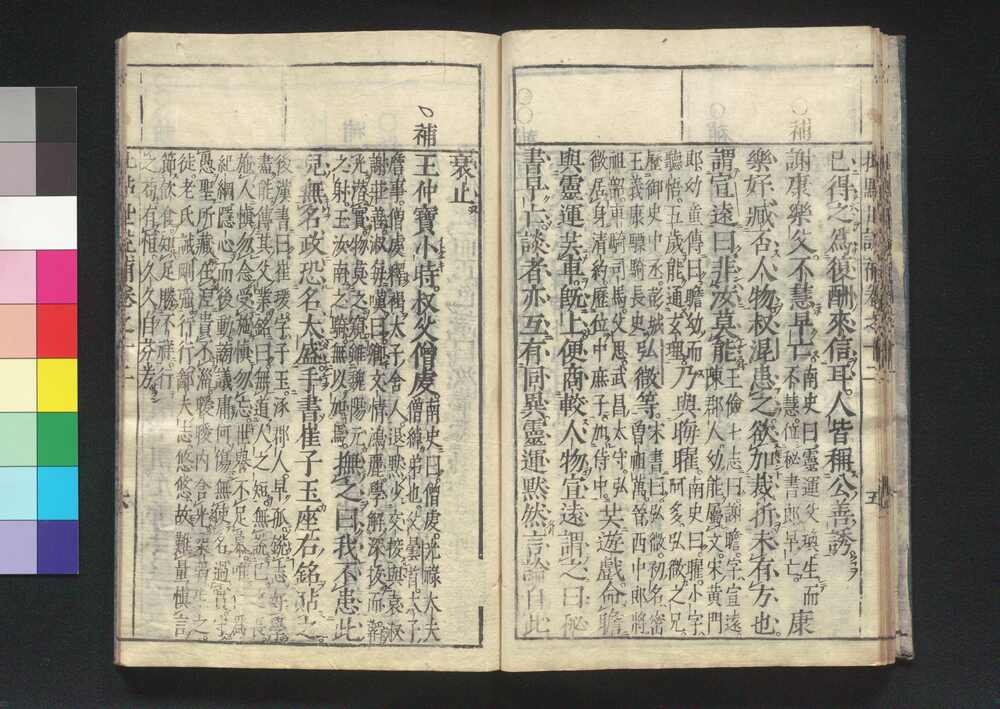 已得之爲復酬來信耳人皆稱公善誘
補
謝康樂父不慧早亡南史曰靈運父瑍生而
不慧位秘書郎早亡康
樂好臧否人物叔混患之欲加裁折未有方也
謂宣遠曰非汝莫能王儉七志曰謝瞻字宣遠
陳郡人幼能屬文宋黄門
郎幼童傳曰瞻幼而
聽悟五歳能通玄理乃與晦曜南史曰曜小字
阿多弘微之兄
歷御史中丞彭城
王義康驃騎長史弘微等宋書曰弘微初名密
曾祖萬晉西中郎將
祖韶車騎司馬父思武昌太守弘
微居身清約歷位中庶子加侍中共遊戯命瞻
與靈運共車既上便商較人物宣遠謂之曰秘
書早亡談者亦互有同異靈運黙然言論自此
衰止
補
王仲寶小時叔父僧虔南史曰僧虔光祿大夫
僧綽弟也父曇首太子
詹事僧虔釋褐太子舍人退黙少交接與袁淑
謝莊善淑每嘆曰卿文情鴻麗學解深拔而韜
光潛實物莫之窺雖魏陽元
之射王汝南之騎無以加焉撫之曰我不患此
兒無名政恐名大盛手書崔子玉座右銘貽之
後漢書曰崔瑗字子玉涿郡人早孤鋭志好學
盡能傳其父業銘曰無道人之短無説己之長
施人慎勿念受施慎勿忘世譽不足慕唯仁爲
紀綱隱心而後動謗議庸何傷無使名過實守
愚聖所臧在涅貴不淄曖曖内含光柔弱生之
徒老氏誡剛彊行行鄙夫志悠悠故難量慎言
節飲食知足勝不祥行
之苟有恒久久自芬芳